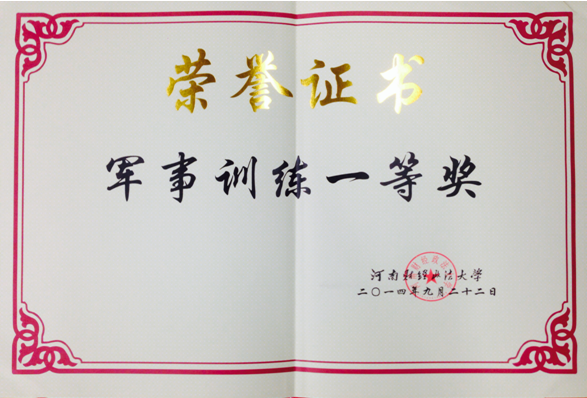 荣誉证书
军事训练一等奖
河南财经政法大学
二〇一四年九月二十二日